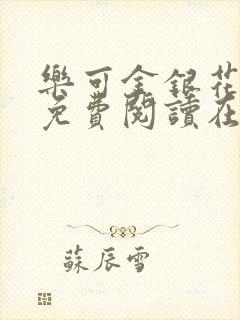 樂可金銀花
免費閱讀在
蘇辰雪